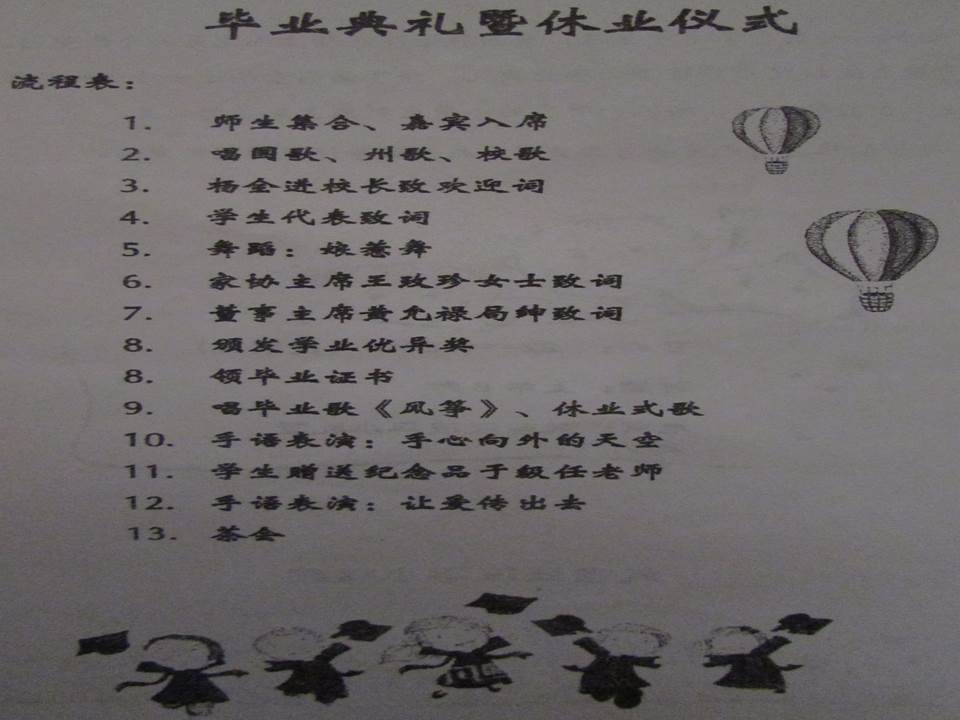 毕业典礼暨休业仪式
流程表：
1. 师生集合、嘉宾入席
2. 唱国歌、州歌、校歌
3. 杨金进校长致欢迎词
4. 学生代表致词
5. 舞蹈：娘惹舞
6. 家协主席王致珍女士致词
7. 董事主席黄允禄局绅致词
8. 颁发学业优异奖
8. 领毕业证书
9. 唱毕业歌《风筝》、休业式歌
10. 手语表演：手心向外的天空
11. 学生赠送纪念品于级任老师
12. 手语表演：让爱传出去
13. 茶会